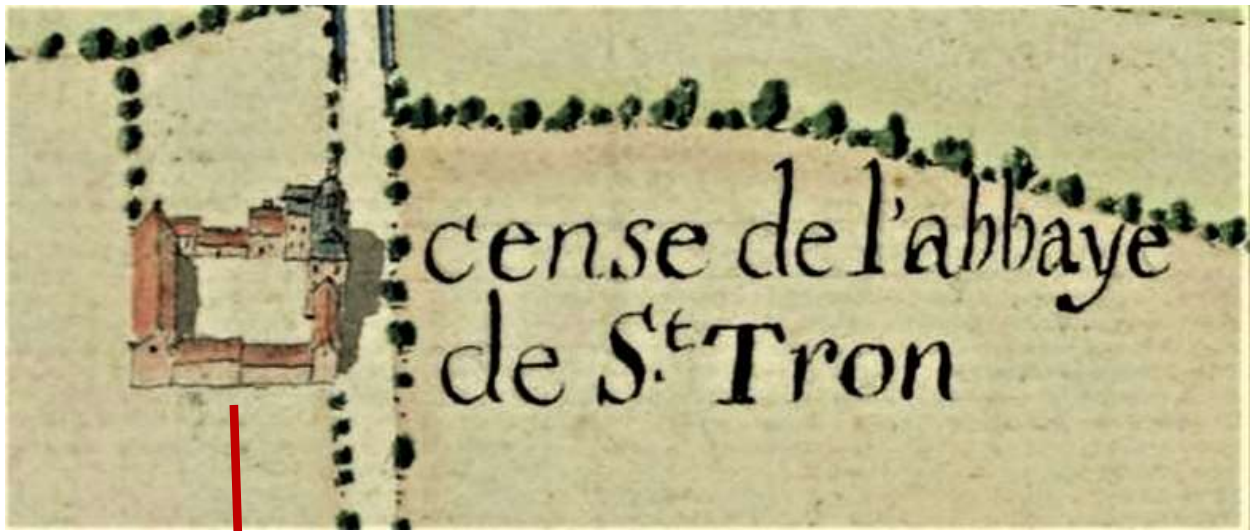 cense de l'abbaye
de S.t Tron